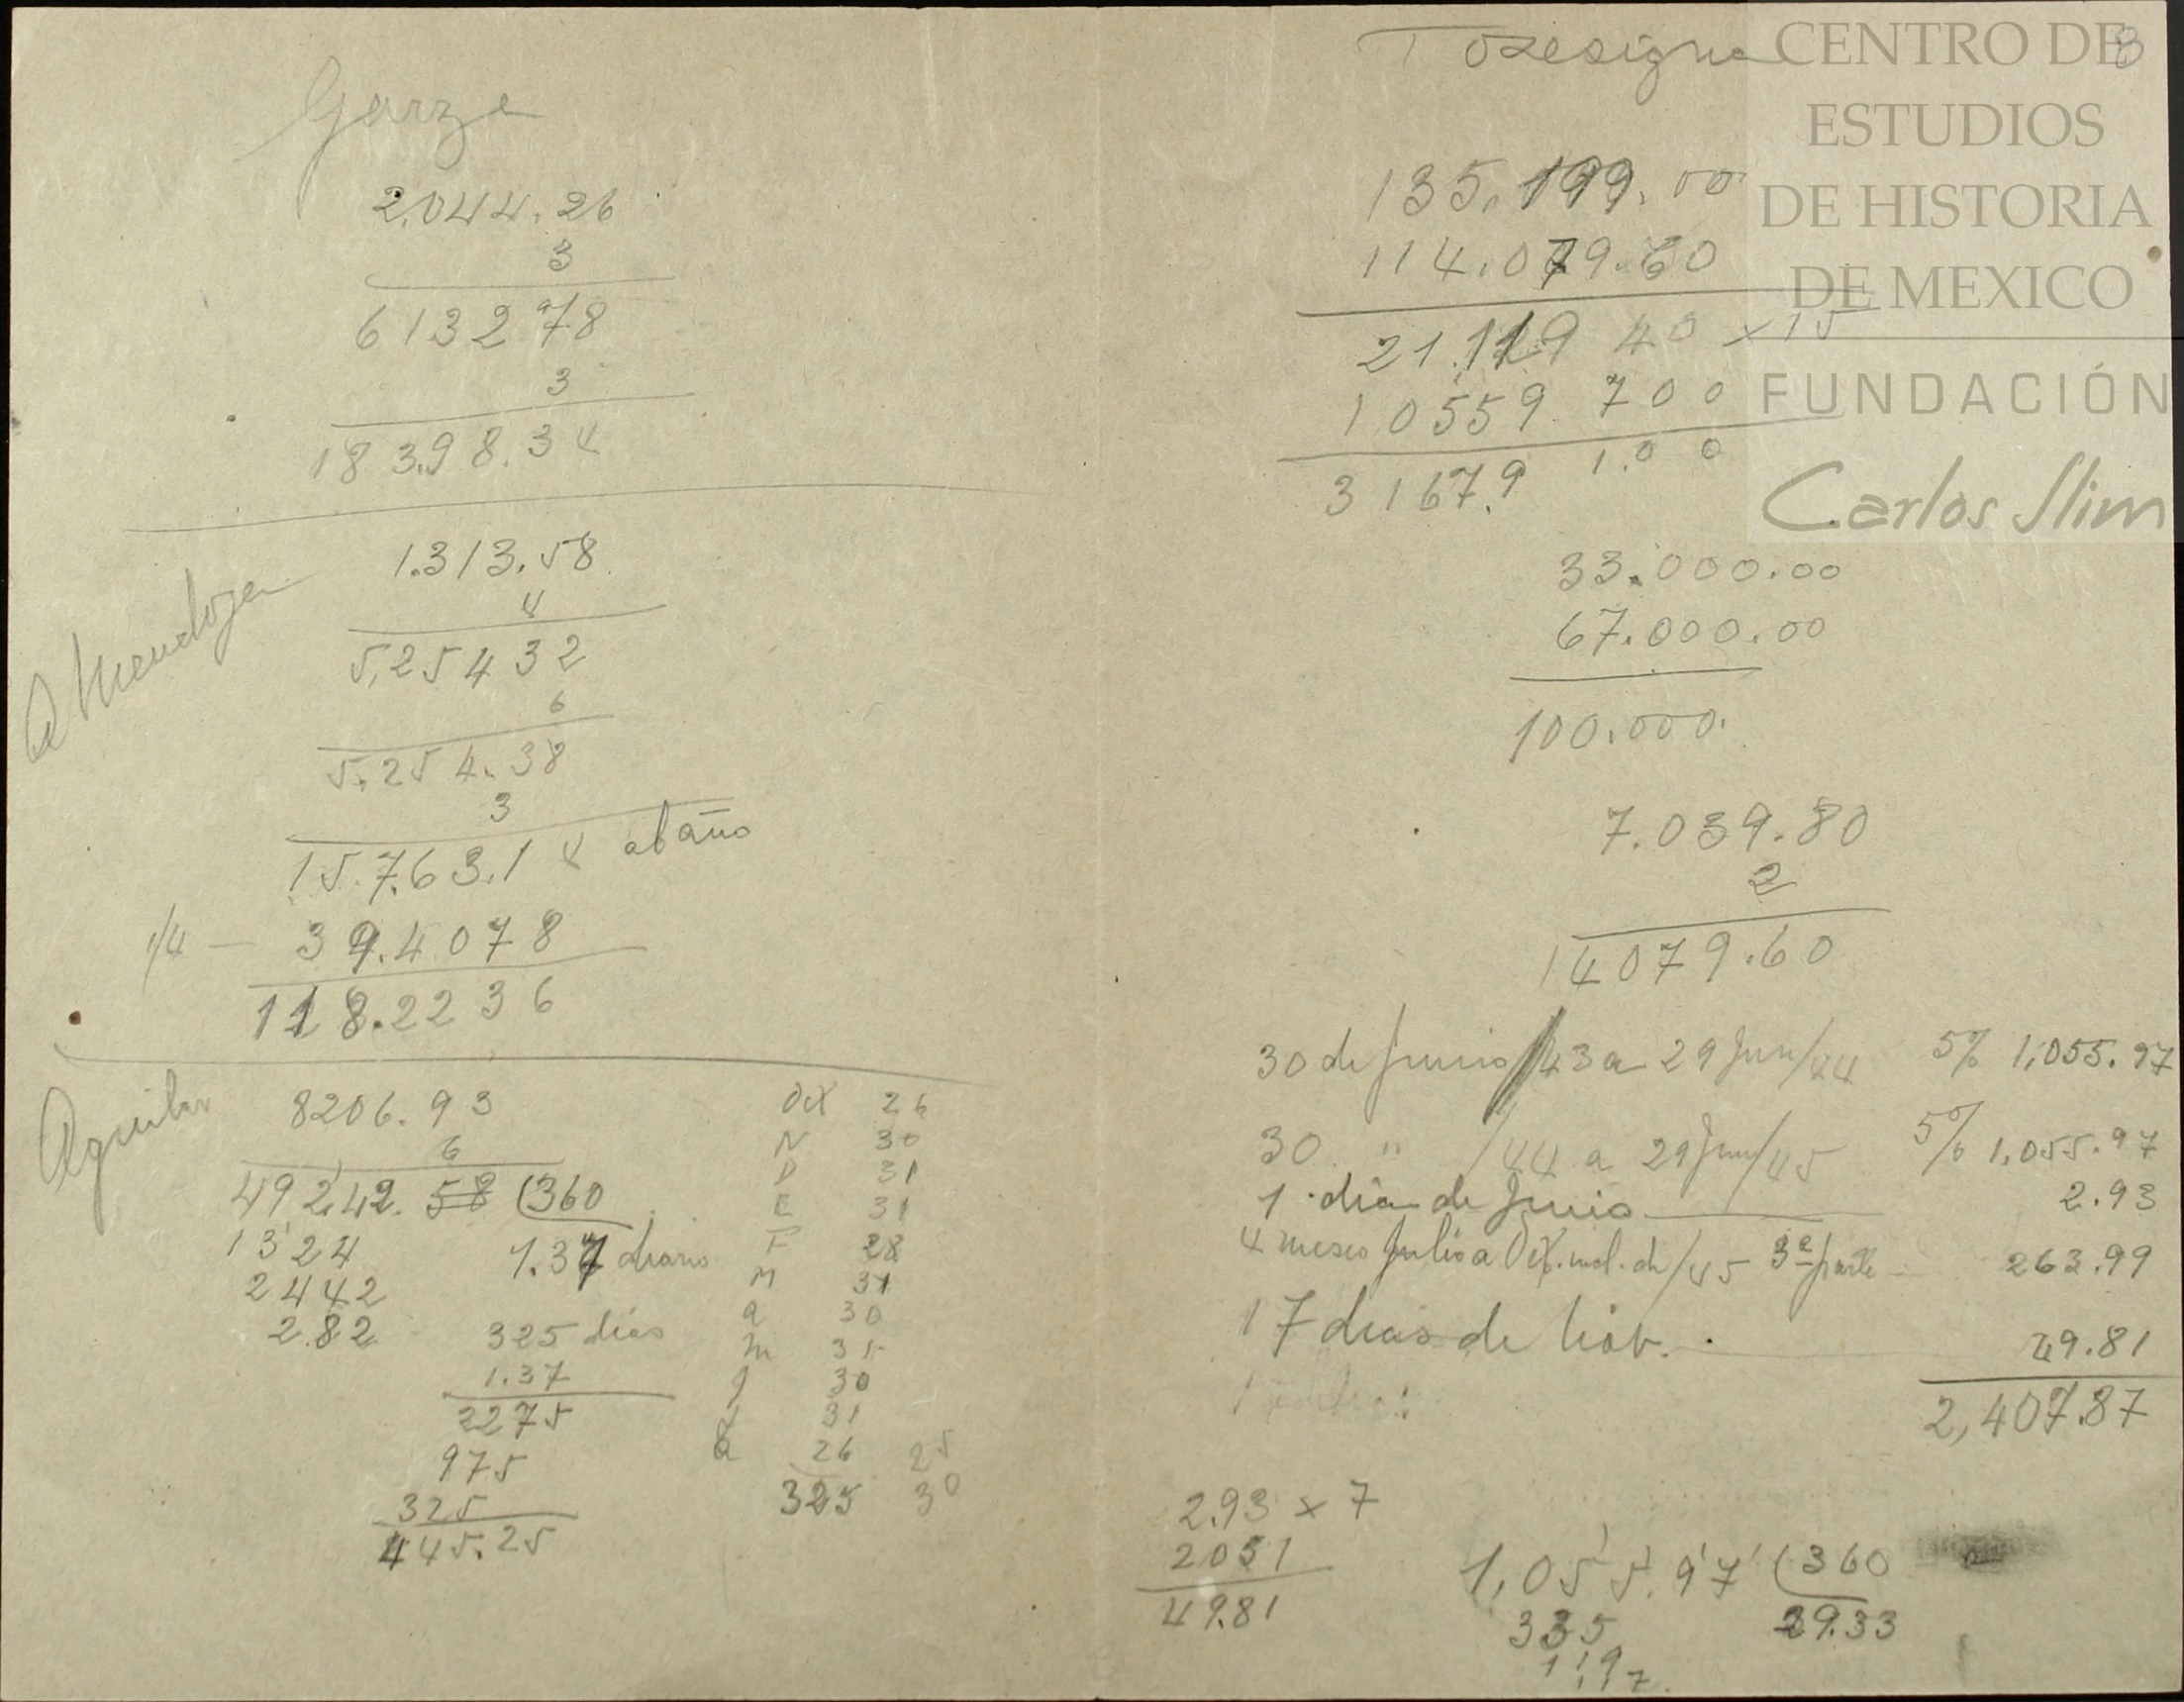 Garza
2.044.26
3
613278
3
18398.34
A Mendoza
1.313.58
4
5,25432
6
5.254.38
3
15.763.14 al año
1/4 — 39.4078
118.2236
Aguilar
8206.93
6
49242.58 (360
1324 1.37 diario
2442
2.82
325 dias
1.37
2275
975
325
445.25
Oct 26
N 30
D 31
E 31
F 28
M 31
a 30
m 31
J 30
J 31
a 26 25
325 30
8
135.199.00
114.079.60
21.119 40 x 15
10559 700
31679 1.00
33.000.00
67.000.00
100.000.
7.039.80
2
14079.60
30 de Junio/43 a 29 Jun/44 5% 1,055.97
30 " /44 a 29 Jun/45 5% 1,055.97
1 dia de Junio 2.93
4 meses Julio a Oct. incl. de/45 3ª parte 263.99
17 dias de Nov. 49.81
2,407.87
2.93 x 7
2051
49.81
1,055.97 (360
335 29.33
1197
CENTRO DE
ESTUDIOS
DE HISTORIA
DE MEXICO
FUNDACIÓN
Carlos Slim